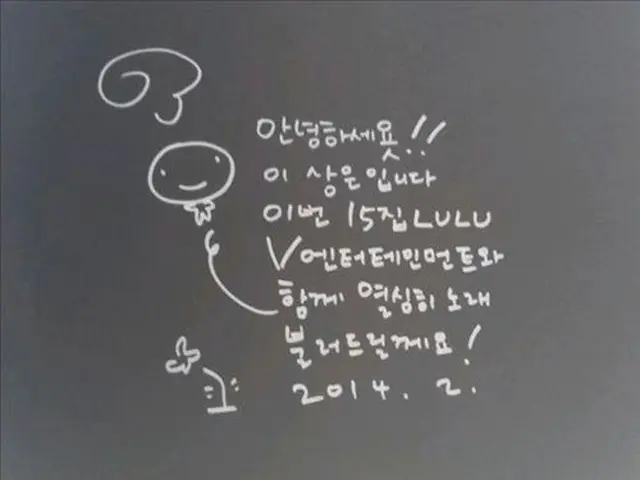 안녕하세욧!!
이상은입니다
이번 15집 LULU
V엔터테인먼트와
함께 열심히 노래
불러드릴께요!
2014. 2.